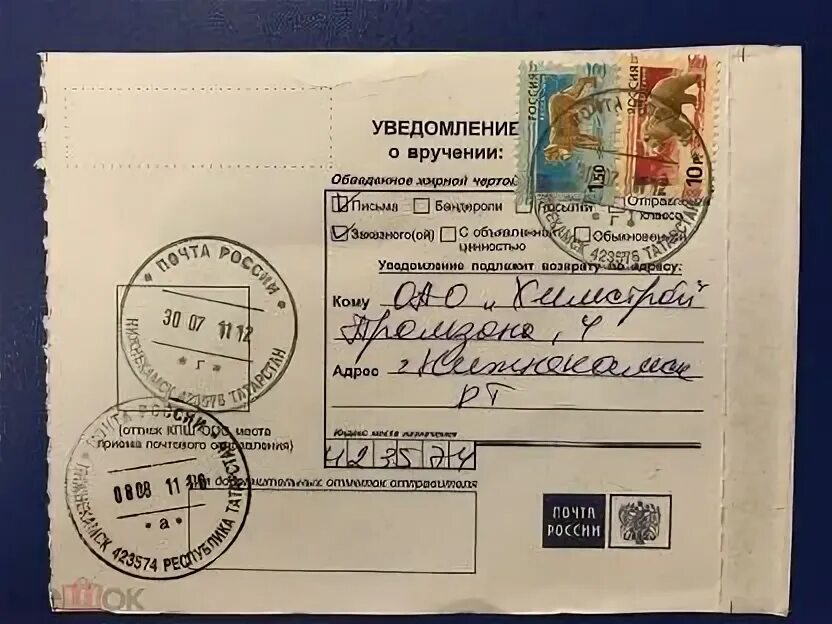 РОССИЯ
1.50
РОССИЯ
10 р
УВЕДОМЛЕНИЕ
о вручении:
Обведенное жирной чертой
Письма Бандероли Посылки Отправления
класса
Заказного(ой) С объявленной ценностью Обыкновенной
Уведомление подлежит возврату по адресу:
Кому ОАО „Химстрой"
Промзона, 4
Адрес г. Нижнекамск
РТ
Индекс места назначения
423574
423576 ТАТАРСТАН
* г *
* ПОЧТА РОССИИ *
30 07 11 12
* г *
НИЖНЕКАМСК 423576 ТАТАРСТАН
(оттиск КПШ ОПС места
приема почтового отправления)
ПОЧТА РОССИИ
08 08 11
* а *
НИЖНЕКАМСК 423574 РЕСПУБЛИКА ТАТАРСТАН
Для дополнительных отметок отправителя
ПОЧТА
РОССИИ